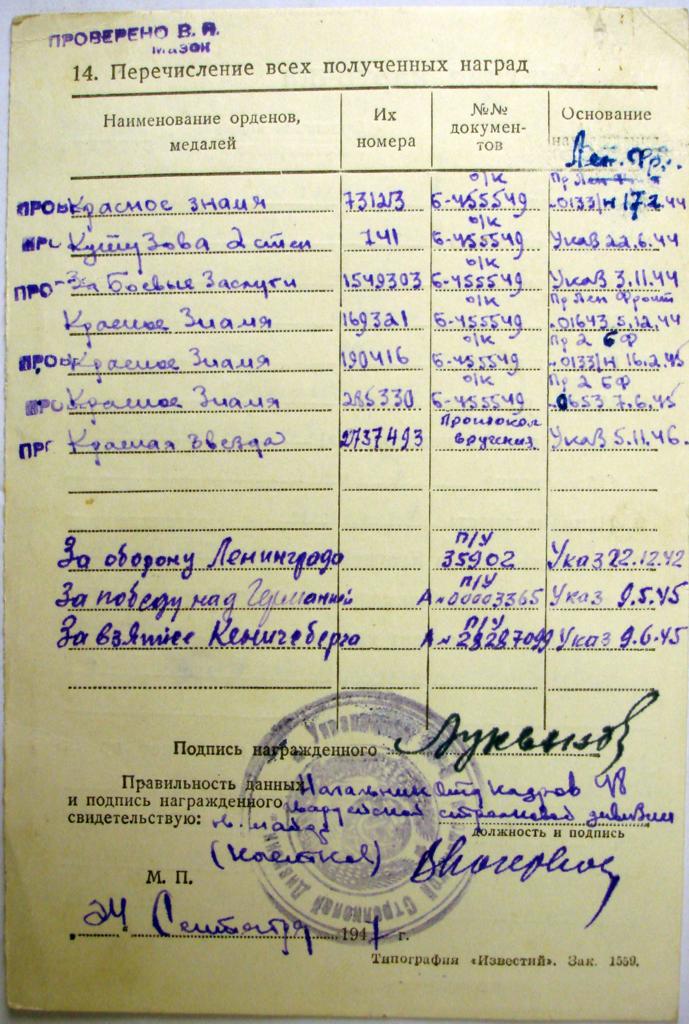 ПРОВЕРЕНО В. Я.
14. Перечисление всех полученных наград
Наименование орденов, медалей
Их номера
№№ докумен-тов
Основание
Лен. Фр.
Красное знамя 731213 о/к Б-455549 0133/н 17.2.44
Кутузова 2 степ 141 о/к Б-455549 Указ 22.6.44
За Боевые Заслуги 1549303 о/к Б-455549 Указ 3.11.44
Красное Знамя 169321 о/к Б-455549 Пр Лен Фронт 01643 5.12.44
Красное Знамя 190416 о/к Б-455549 Пр 2 БФ 0133/н 16.2.45
Красное Знамя 285330 о/к Б-455549 Пр 2 БФ 0653 7.6.45
Красная Звезда 2737493 Протокол вручения Указ 5.11.46.
За оборону Ленинграда п/у 35902 Указ 22.12.42
За победу над Германией п/у А №00003365 Указ 9.5.45
За взятие Кенигсберга п/у Указ 9.6.45
Подпись награжденного
Правильность данных Начальник отд кадров 98
и подпись награжденного гвардейской стрелковой дивизии
свидетельствую:
должность и подпись
М. П.
Сентября 1947 г.
Типография «Известий». Зак. 1559.